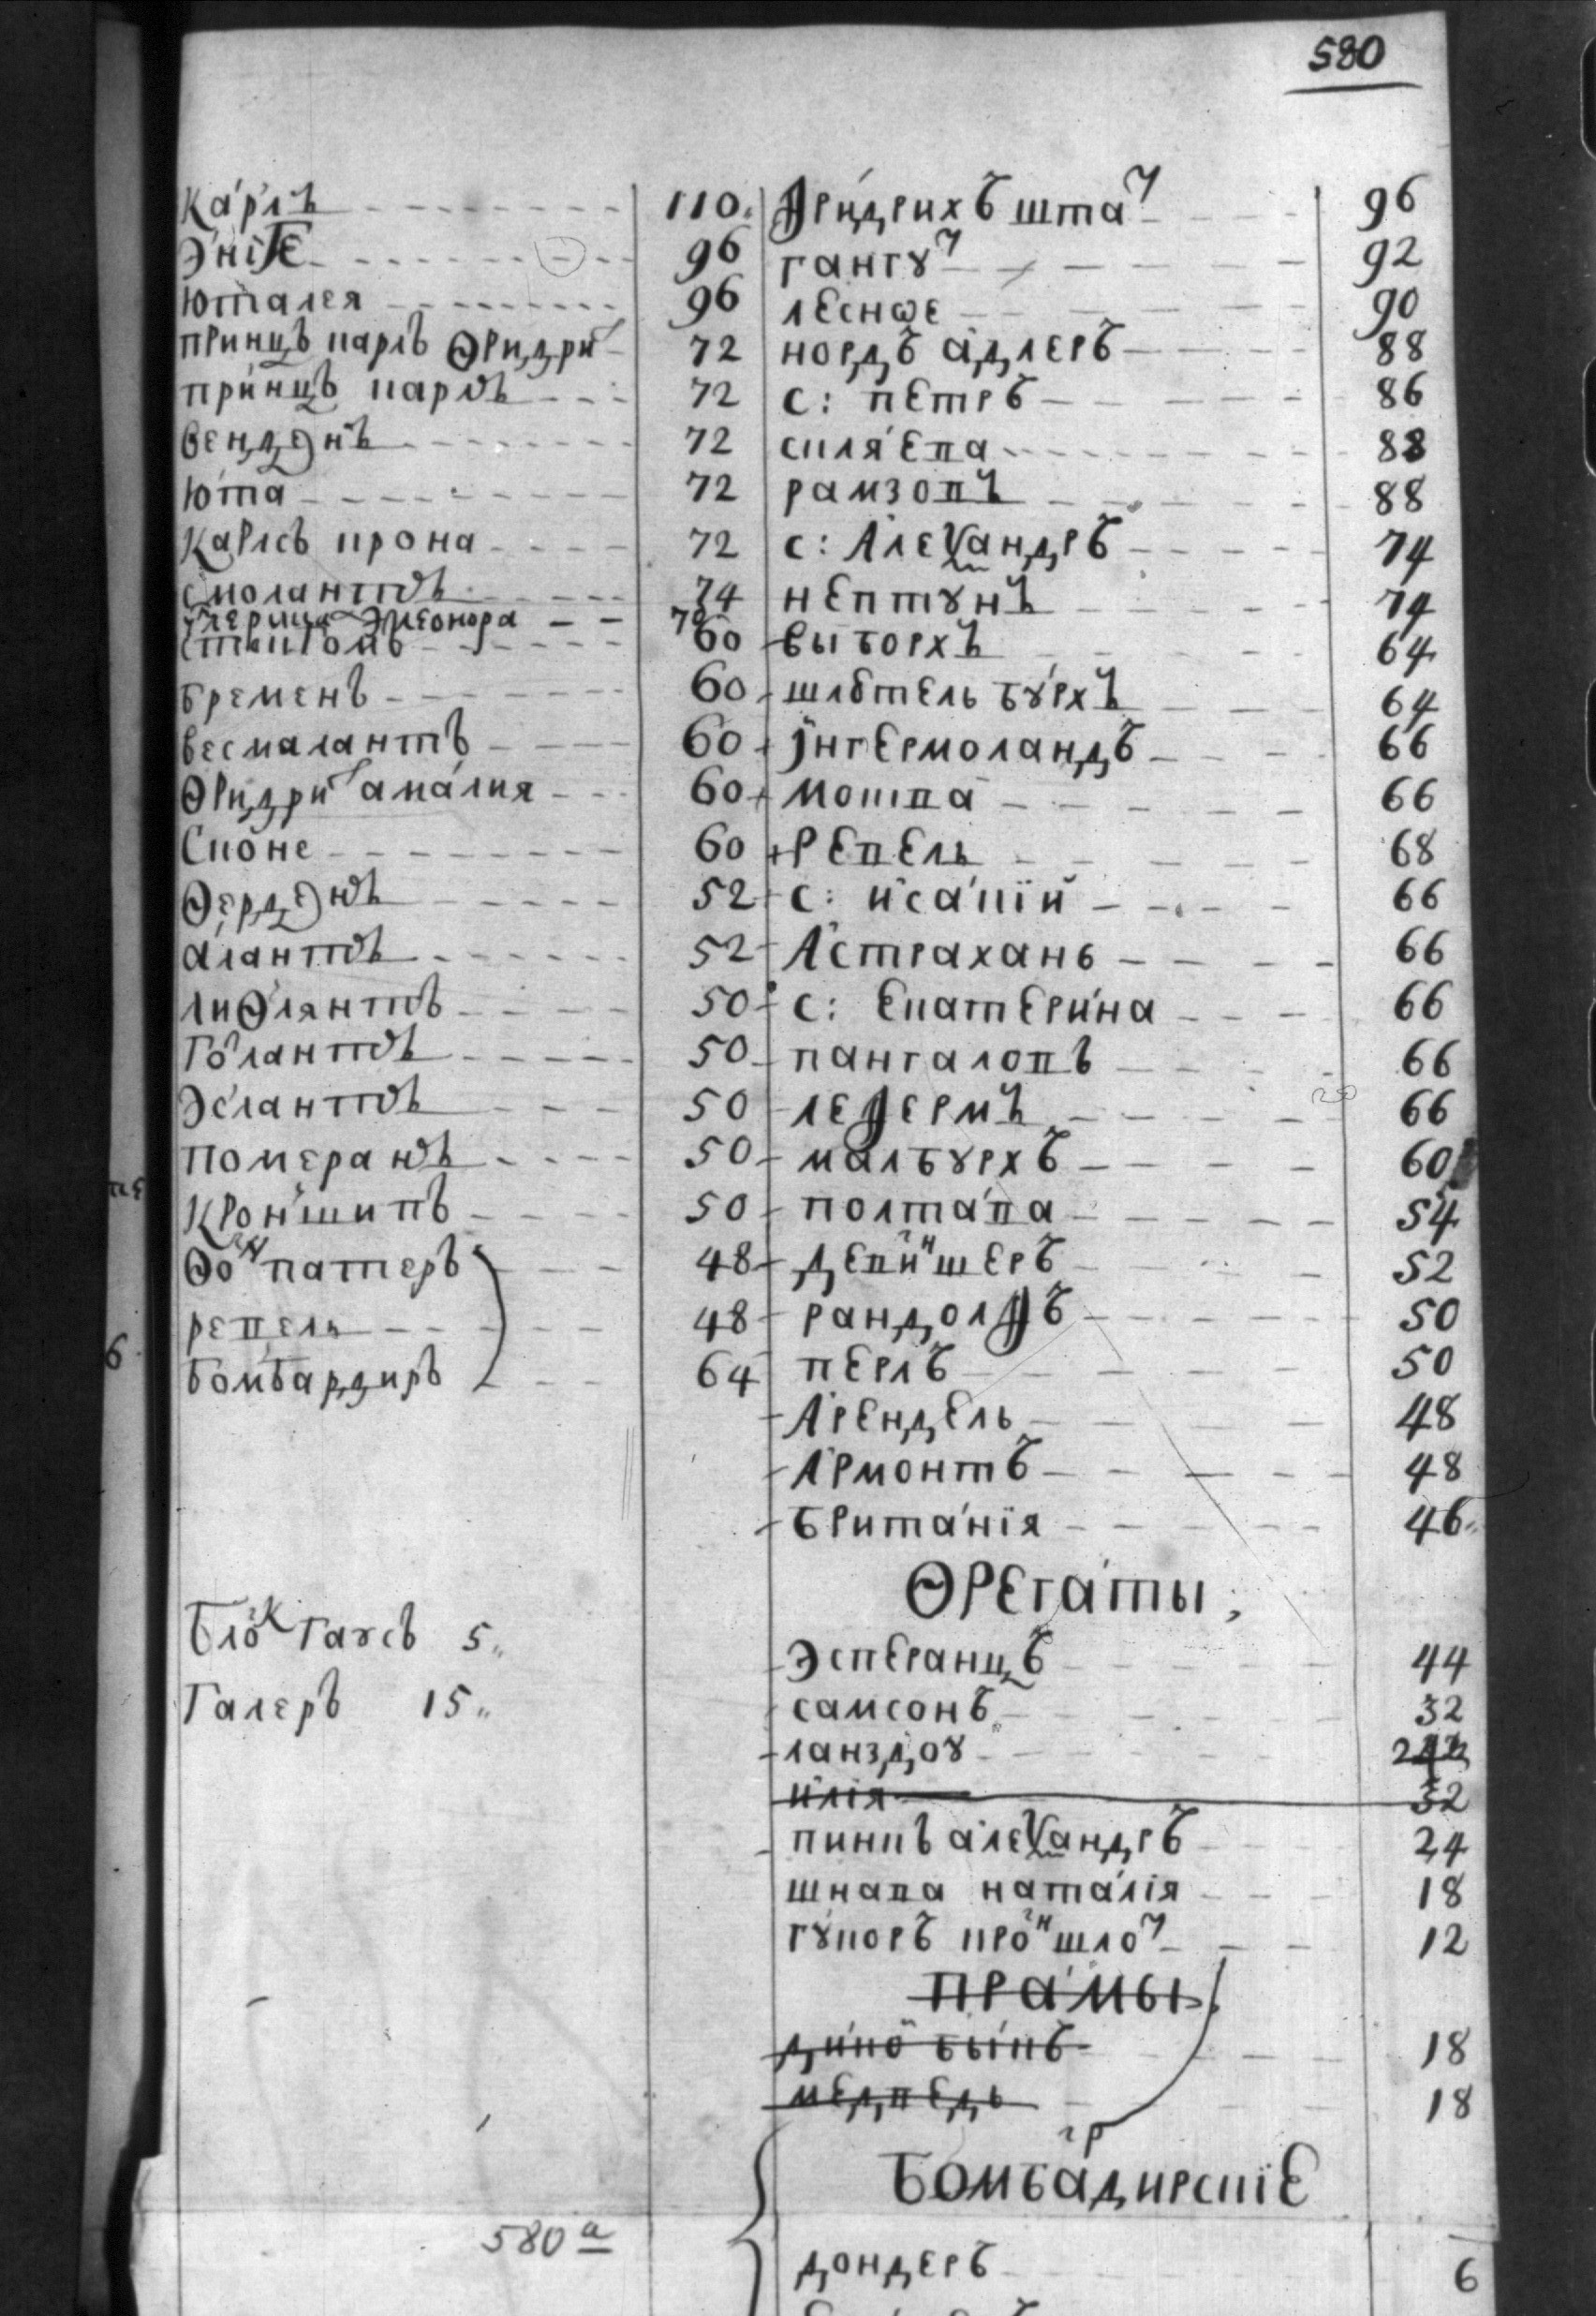 580
Карлъ 110
ЭнiгE 96
Юталея 96
принцъ карлъ Ѳридри 72
принцъ карлъ 72
венденъ 72
Юта 72
Карлсъ крона 72
смолантъ 74
Элеонора 70
60
Бременъ 60
весмалантъ 60
Ѳридри амалия 60
Сконе 60
Ѳерденъ 52
алантъ 52
лиѲлянтъ 50
Го л лантъ 50
Эслантъ 50
померанъ 50
Кроншипъ 50
Ѳонъ патеръ 48
ревель 48
Бомбардиръ 64
Блокъ гаусъ 5
Галеръ 15
580 а
Фридрихъ штат 96
гангȣт 92
лесноѡе 90
нордъ адлеръ 88
с: петръ 86
слявепа 88
рамзовъ 88
с: Алеѯандръ 74
нептȣнъ 74
выборхъ 64
шлютель бȣрхъ 64
Інгермоландъ 66
москва 66
Ревель 68
с: исакїй 66
Астрахань 66
с: Екатерина 66
пангаловъ 66
лефермъ 66
малбȣрхъ 60
полтава 54
девиншеръ 52
рандолфъ 50
перлъ 50
Арендель 48
Армонтъ 48
Британїя 46
ѲРЕГАТЫ
Эсперанцъ 44
самсонъ 32
ланздоȣ
илїя 32
пинкъ алеѯандръ 24
шнава наталїя 18
гȣкоръ кроншлот 12
прамы
дикой быкъ 18
медведь 18
Бомбардирскїе
дондеръ 6